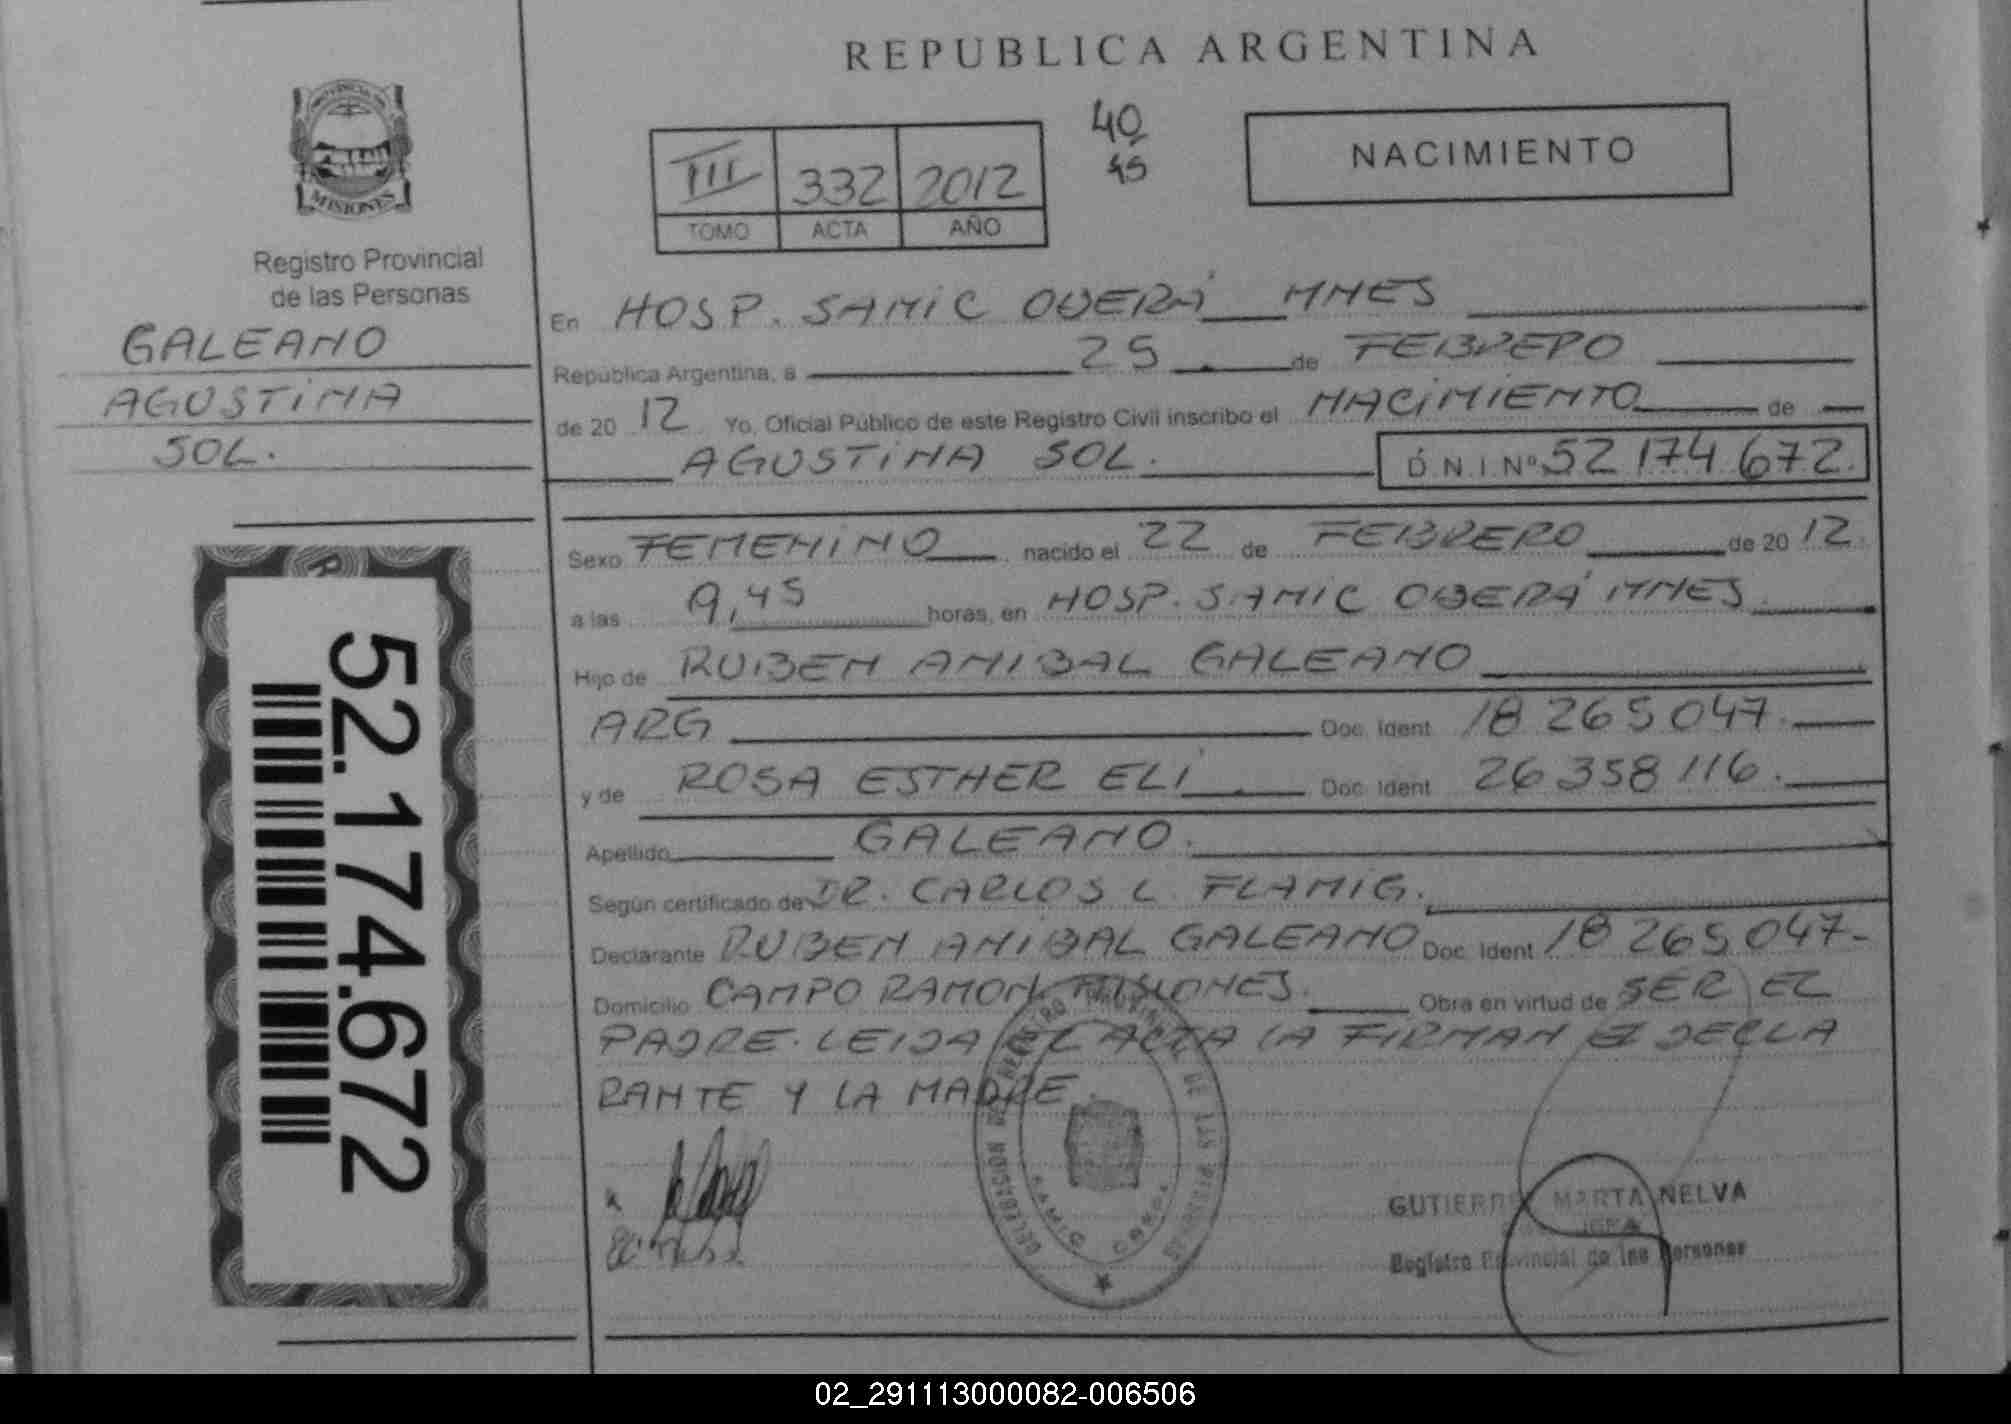 REPUBLICA ARGENTINA
40
45
III 332 2012
TOMO ACTA AÑO
NACIMIENTO
MISIONES
Registro Provincial
de las Personas
GALEANO
AGUSTINA
SOL.
52.174.672
En HOSP. SAMIC OBERÁ MNES
República Argentina, a 25 de FEBRERO
de 20 12 Yo, Oficial Público de este Registro Civil inscribo el NACIMIENTO de
AGUSTINA SOL. D.N.I.Nº 52 174 672.
Sexo FEMENINO nacido el 22 de FEBRERO de 20 12.
a las 9,45 horas, en HOSP. SAMIC OBERÁ MNES.
Hijo de RUBEN ANIBAL GALEANO
ARG Doc. Ident. 18 265 047.
y de ROSA ESTHER ELI Doc. Ident. 26 358 116.
Apellido GALEANO.
Según certificado de DR. CARLOS L. FLAMIG.
Declarante RUBEN ANIBAL GALEANO Doc. Ident. 18 265 047-
Domicilio CAMPO RAMON MISIONES. Obra en virtud de SER EL
PADRE. LEIDA EL ACTA LA FIRMAN EL DECLA
RANTE Y LA MADRE.
DELEGACION REGISTRO PROVINCIAL DE LAS PERSONAS
MARTA NELVA
JEFA
Registro Provincial de las Personas
02_291113000082-006506